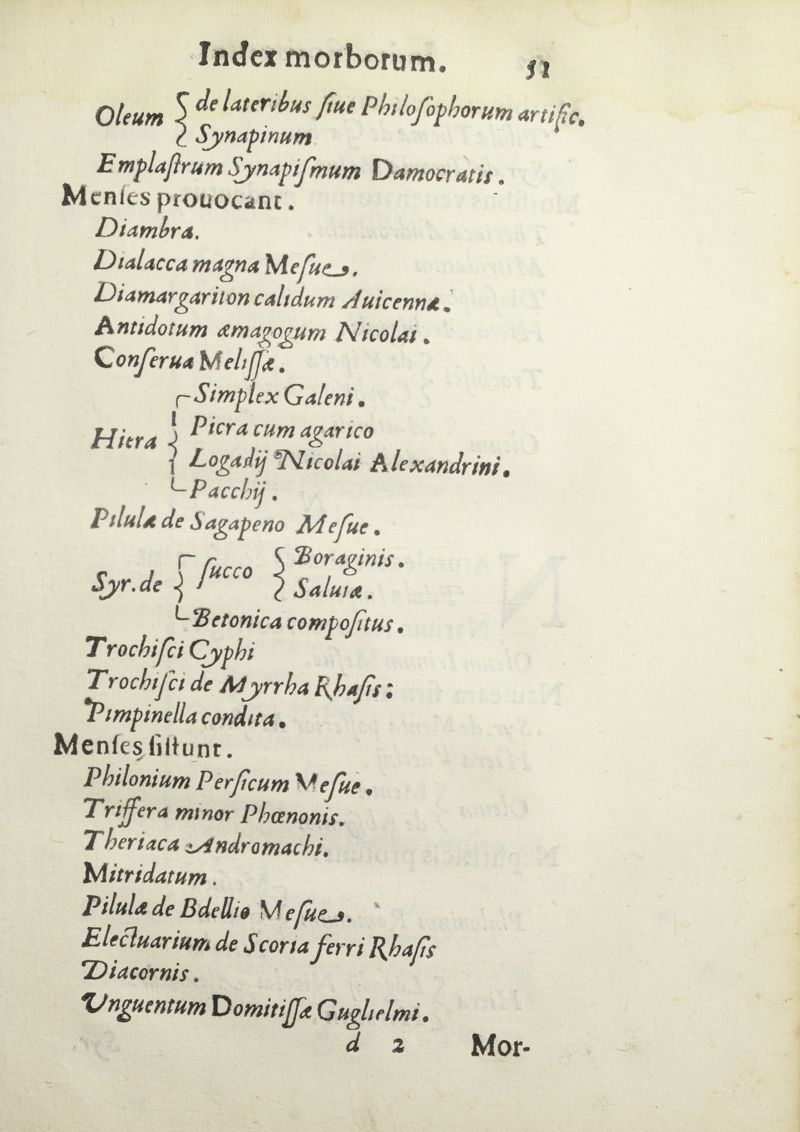 Index morborum. 51
Oleum { de lateribus ſiue Philoſophorum artific.
Synapinum
Emplaſtrum Synapiſmum Damocratis.
Menſes prouocant.
Diambra.
Dialacca magna Meſue.
Diamargariton calidum Auicennæ.
Antidotum æmagogum Nicolai.
Conſerua Meliſſæ.
Simplex Galeni.
Hiera { Picra cum agarico
Logadij Nicolai Alexandrini.
Pacchij.
Pilulæ de Sagapeno Meſue.
Syr. de { ſucco { Boraginis.
Saluiæ.
Betonica compoſitus.
Trochiſci Cyphi
Trochiſci de Myrrha Rhaſis:
Pimpinella condita.
Menſes ſiſtunt.
Philonium Perſicum Meſue.
Triffera minor Phœnonis.
Theriaca Andromachi.
Mitridatum.
Pilulæ de Bdellio Meſue.
Electuarium de Scoria ferri Rhaſis
Diacornis.
Vnguentum Domitiſſæ Guglielmi.
d 2 Mor-